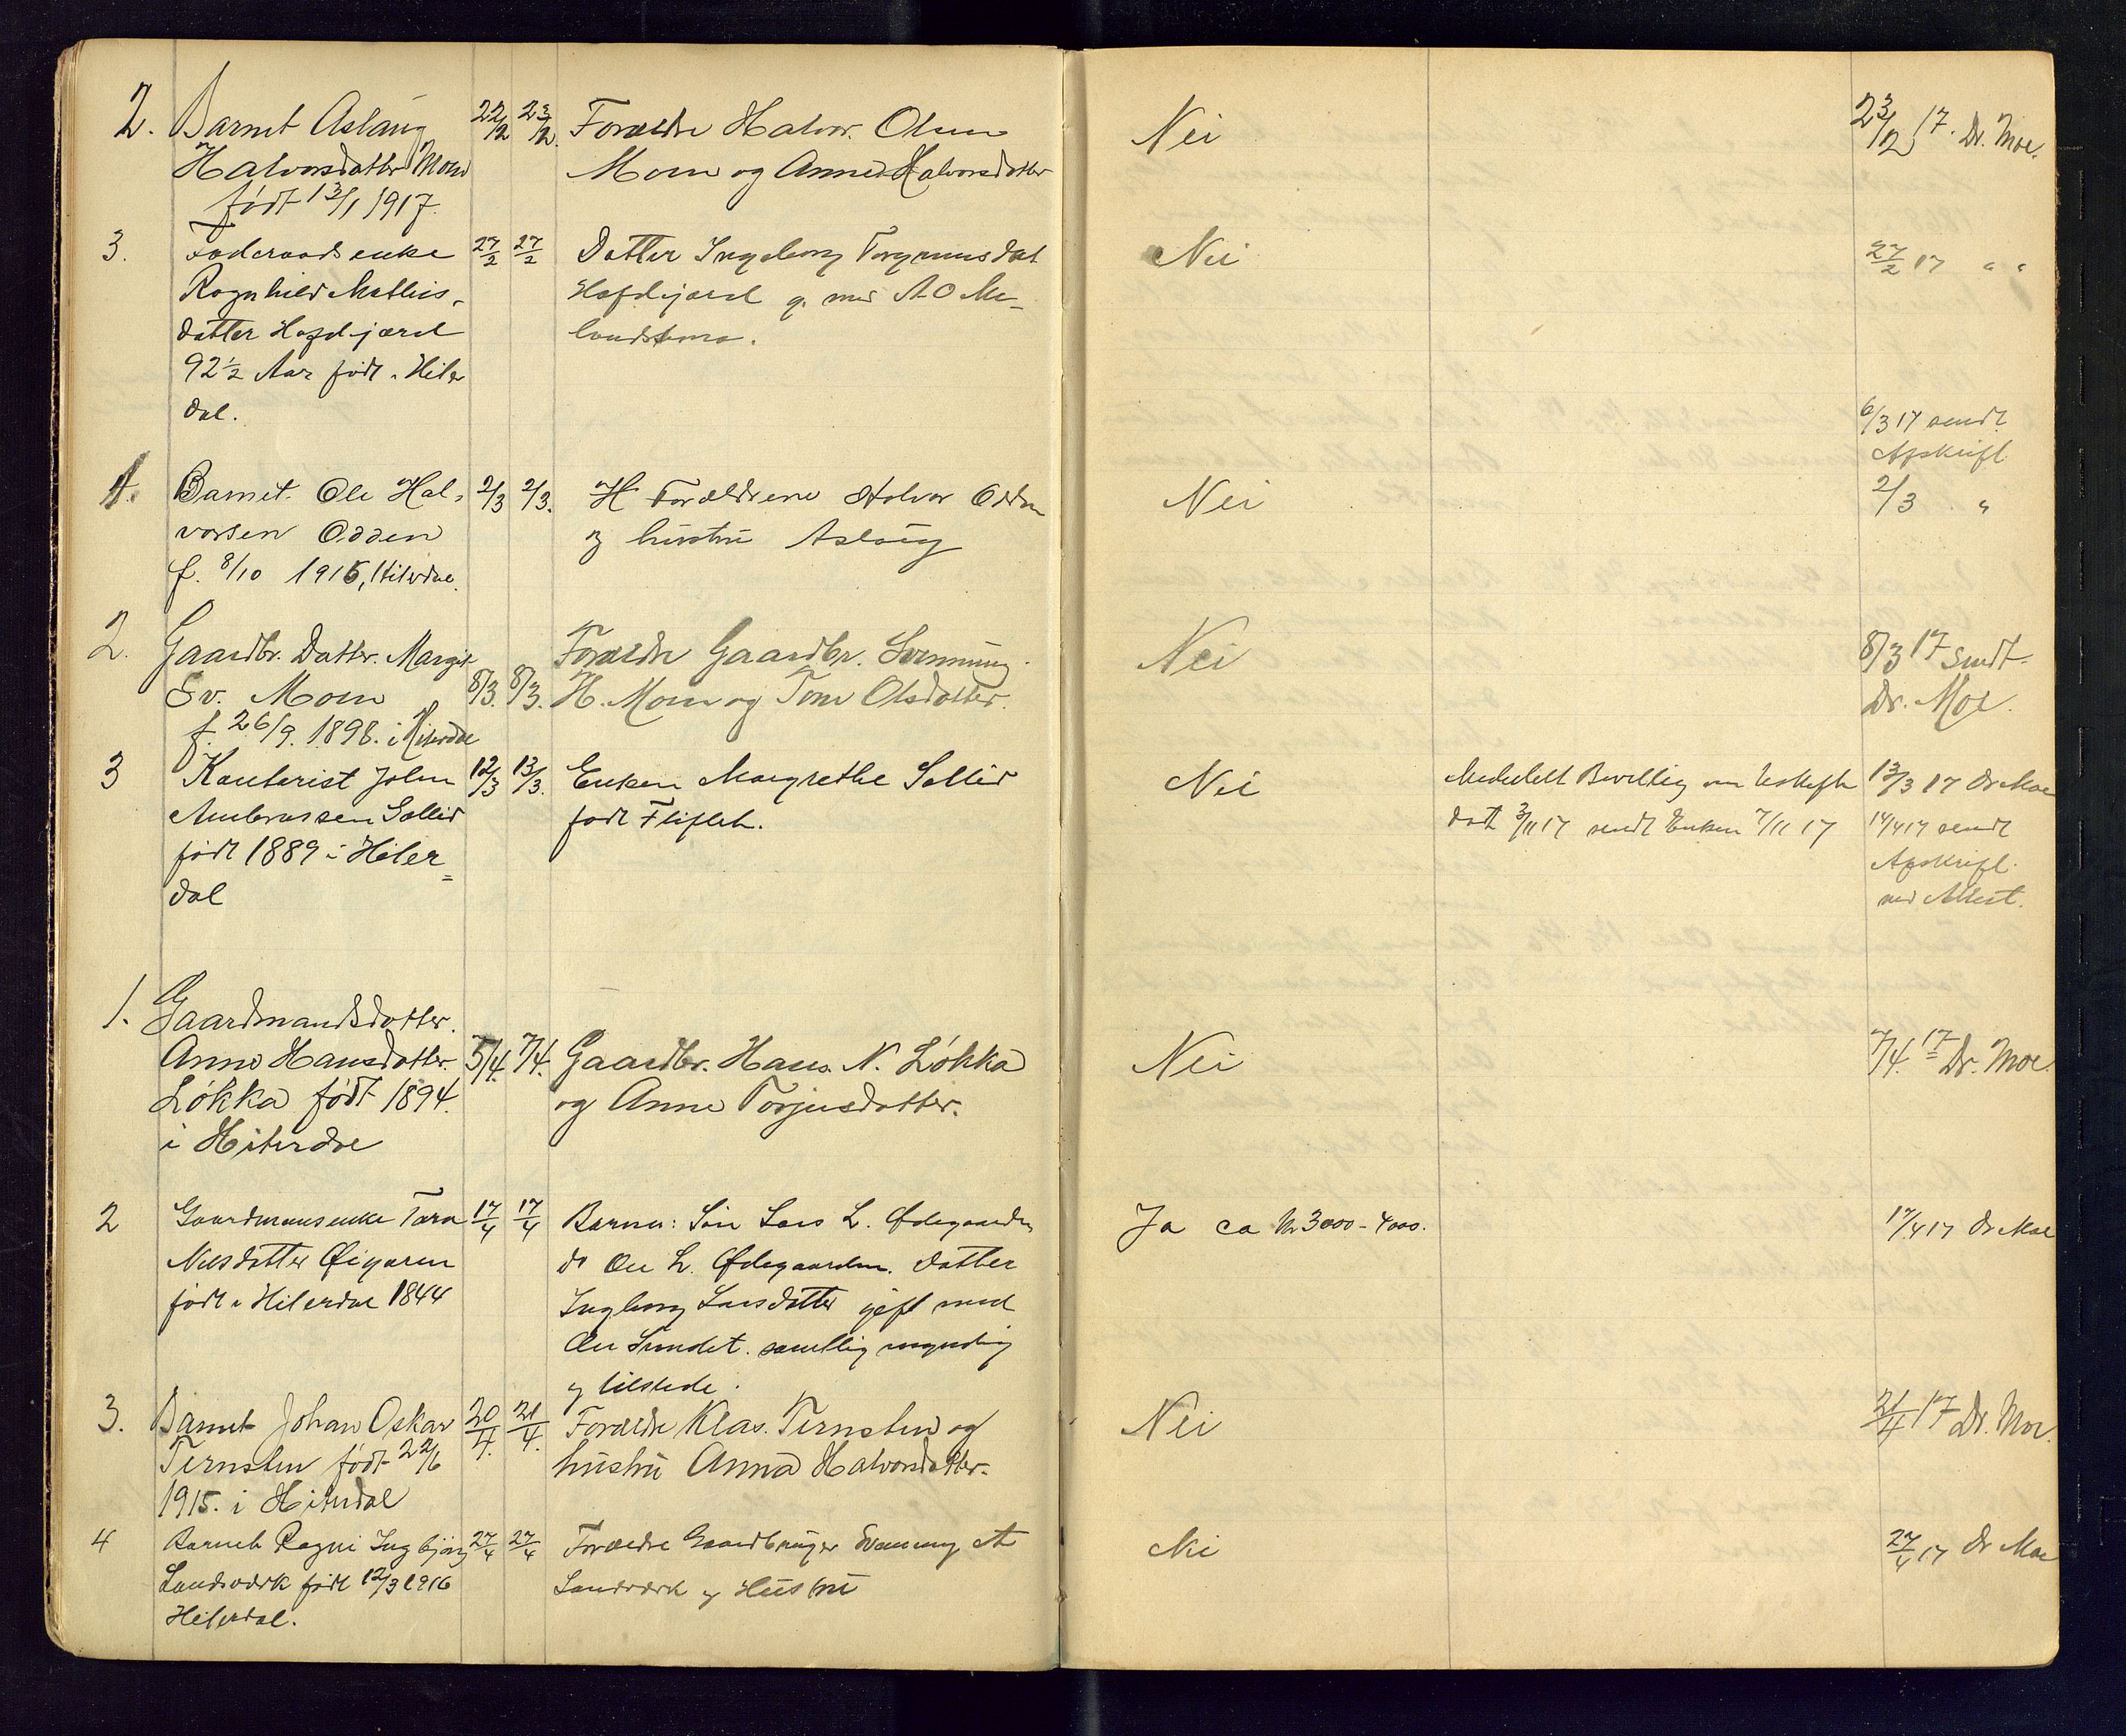 2. Barnet Aslaug 22/2 23/2. Forældre Halvor Olsen Nei 23/2 17. Dr. Moe.
Halvorsdatter Moen Moen og Anne Halvorsdatter
født 13/1 1917.
3. Føderaadsenke 27/2 27/2 Datter Ingeborg Torgrimsdat Nei 27/2 17 " "
Ragnhild Mathis- g. med A O Me-
datter landsmo.
92½ Aar født i Hiter
dal.
6/3 17 sendt
Afskrift
1. Barnet Ole Hal- 2/3 2/3. Forældrene Halvor Odden Nei 2/3 "
vorsen Odden og hustru Aslaug
f. 8/10 1916, Hiterdal.
2. Gaardbr. Datter. Margit Forældre Gaardbr. Svenning Nei 8/3 17 sendt
Sv. Moen 8/3. 8/3. H. Moen og Tone Olsdatter. Dr. Moe.
f. 26/9. 1898. i Hiterdal
3 Kontorist John 12/3 13/3. Enken Margrethe Sollid Nei Meddelt Bevilling om Uskifte 13/3 17 Dr Moe
Ambrossen Sollid født Fliflet. dat 3/11 17 sendt Enken 7/11 17 14/4 17 sendt
født 1889 i Hiter= Afskrift
dal med Attest.
1. Gaardmandsdatter.
Anne Hansdatter 5/4. 7/4. Gaardbr. Hans N. Løkka Nei 7/4. 17 Dr. Moe.
Løkka født 1894. og Anne Torjusdatter.
i Hiterdal
2 Gaardmansenke Tora 17/4 17/4 Barna: Søn Lars L. Ødegaarden Ja ca kr 3000 - 4000. 17/4 17 Dr Moe
Nilsdatter Øigaren do Ole L. Ødegaarden. Datter
født i Hiterdal 1844 Ingborg Larsdatter gift med
Ole Sundet. samtlig myndig
og tilstede.
3. Barnet Johan Oskar 20/4. 21/4. Forældre Klas. Ternsten og Nei 21/4 17 Dr. Moe.
Ternsten født 22/6 hustru Anna Halvorsdatter.
1915. i Hiterdal
4 Barnet Ragni Ingbjørg 27/4 27/4 Forældre Gaardbruger Svenning A Nei 27/4 17 Dr Moe
Landsværk født 12/3 1916 Landsværk og Hustru
Hiterdal.